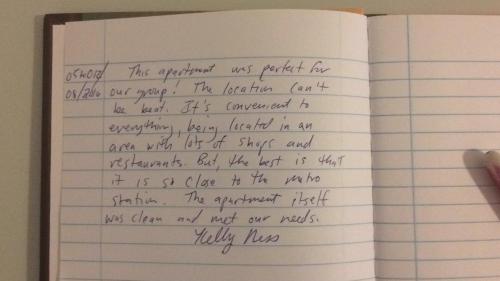 This apartment was perfect for
08/2016 our group! The location can't
be beat. It's convenient to
everything, being located in an
area with lots of shops and
restaurants. But, the best is that
it is so close to the metro
station. The apartment itself
was clean and met our needs.
Kelly Ness